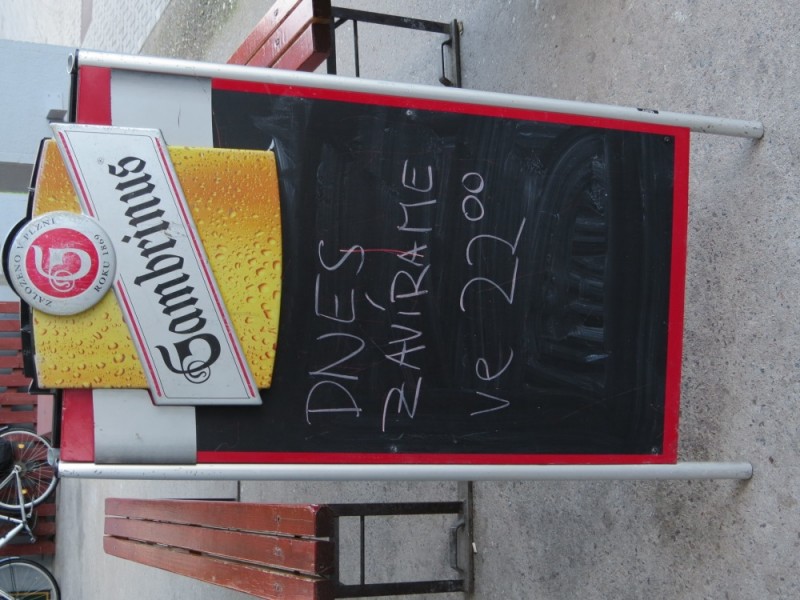 Gambrinus
ZALOŽENO V PLZNI
ROKU 1869
DNES
ZAVÍRÁME
ve 22⁰⁰